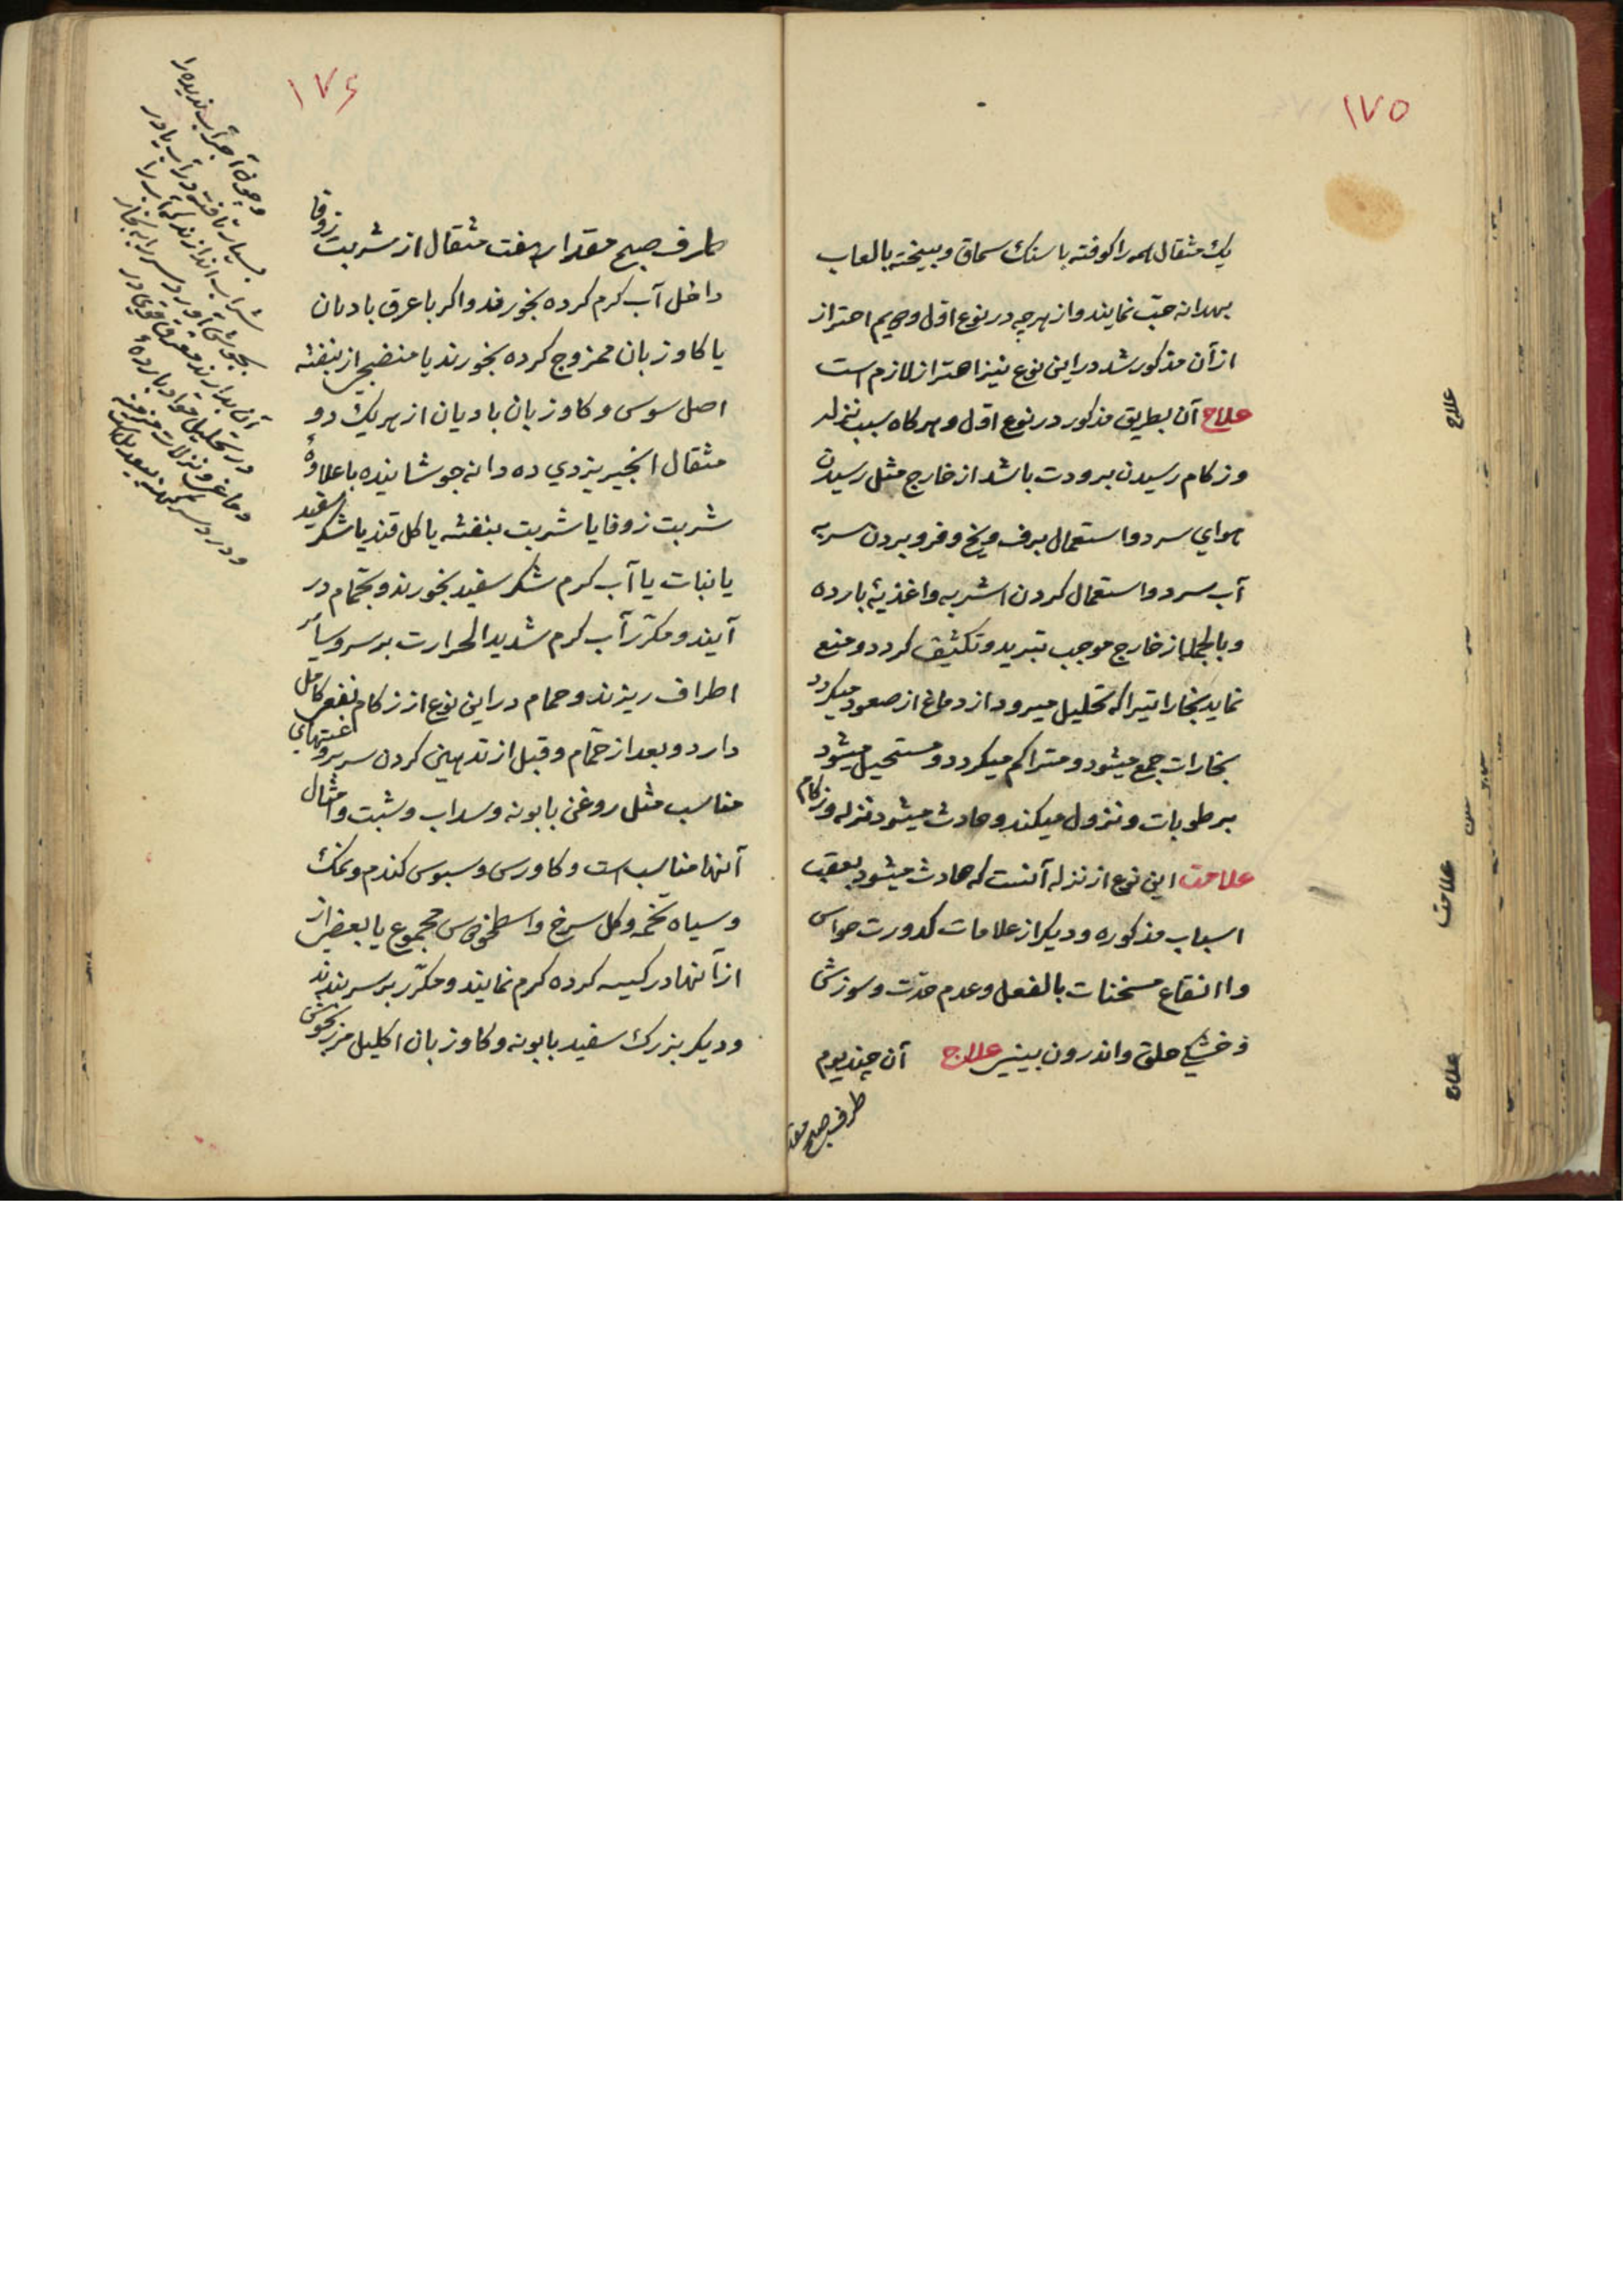 ۱۷۵
یک مثقال همه را کوفته با سنک سماق و بیخته بالعاب
بهدانه حب نمایند و از هرچه در نوع اول و دویم احتراز
از آن مذکور شد در این نوع نیز احتراز لازم است
علاج آن بطریق مذکور در نوع اول و هر کاه سبب نزله
و زکام رسیدن برودت باشد از خارج مثل رسیدن
هوای سرد و استعمال برف و یخ و فرو بردن سر به
آب سرد و استعمال کردن اشربه و اغذیهٔ بارده
و بالجمله از خارج موجب تبرید و تکثیف کردد و منع
نماید بخاراتیرا که تحلیل میرود از دماغ از صعود میکردد
بخارات جمع میشود و متراکم میکردد و مستحیل میشود
برطوبات و نزول میکند و حادث میشود نزله و زکام
علامت این نوع از نزله آنست که حادث میشود بعقب
اسباب مذکوره و دیکر از علامات کدورت حواس
و انتفاع مسخنات بالفعل و عدم حدت و سوزش
و خشکی حلق و اندرون بینی علاج آن چند یوم
طرف صبح مقدار
علاج
علامت
علاج
۱۷۶
طرف صبح مقدار هفت مثقال از شربت زوفا
داخل آب کرم کرده بخورند و اکر با عرق بادیان
یا کاوزبان ممزوج کرده بخورند یا منضجی از بنفشه
اصل سوس و کاوزبان بادیان از هر یک دو
مثقال انجیر یزدی ده دانه جوشانیده با علاوهٔ
شربت زوفا یا شربت بنفشه یا کل قند یا شکر سفید
یا نبات یا آب کرم شکر سفید بخورند و بحمام در
آیند و مکرر آب کرم شدید الحرارت بر سر و سائر
اطراف ریزند و حمام در این نوع از زکام نفعی کامل
دارد و بعد از حمام و قبل از تدهین کردن سر بروغنهای
مناسب مثل روغن بابونه و سداب و شبت و امثال
آنها مناسب است و کاورس و سبوس کندم و نمک
و سیاه تخمه و کل سرخ و اسطخودس مجموع یا بعضی از
از آنها در کیسه کرده کرم نمایند و مکرر بر سر بندند
و دیکر بزرک سفید بابونه و کاوزبان اکلیل مرزنجوش
و چون آجر آب ندیده را
بسیار تافته در آب یا در
شراب اندازند که آب را
بجوش آورد و سر را به بخار
آن بدارند معرق قوی در
در تحلیل مواد بارده
دماغی و نزلات مزمنه
و درد سر کهنه بیعدیل است